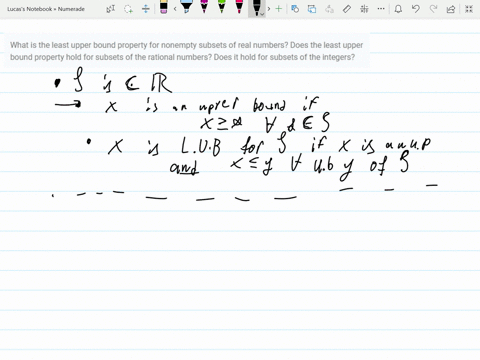 Lucas's Notebook » Numerade
What is the least upper bound property for nonempty subsets of real numbers? Does the least upper
bound property hold for subsets of the rational numbers? Does it hold for subsets of the integers?
• S is ⊂ ℝ
→ x is an upper bound if
x ≥ s ∀ s ∈ S
• x is L.U.B for S if x is an u.p
and x ≤ y ∀ u.b y of S